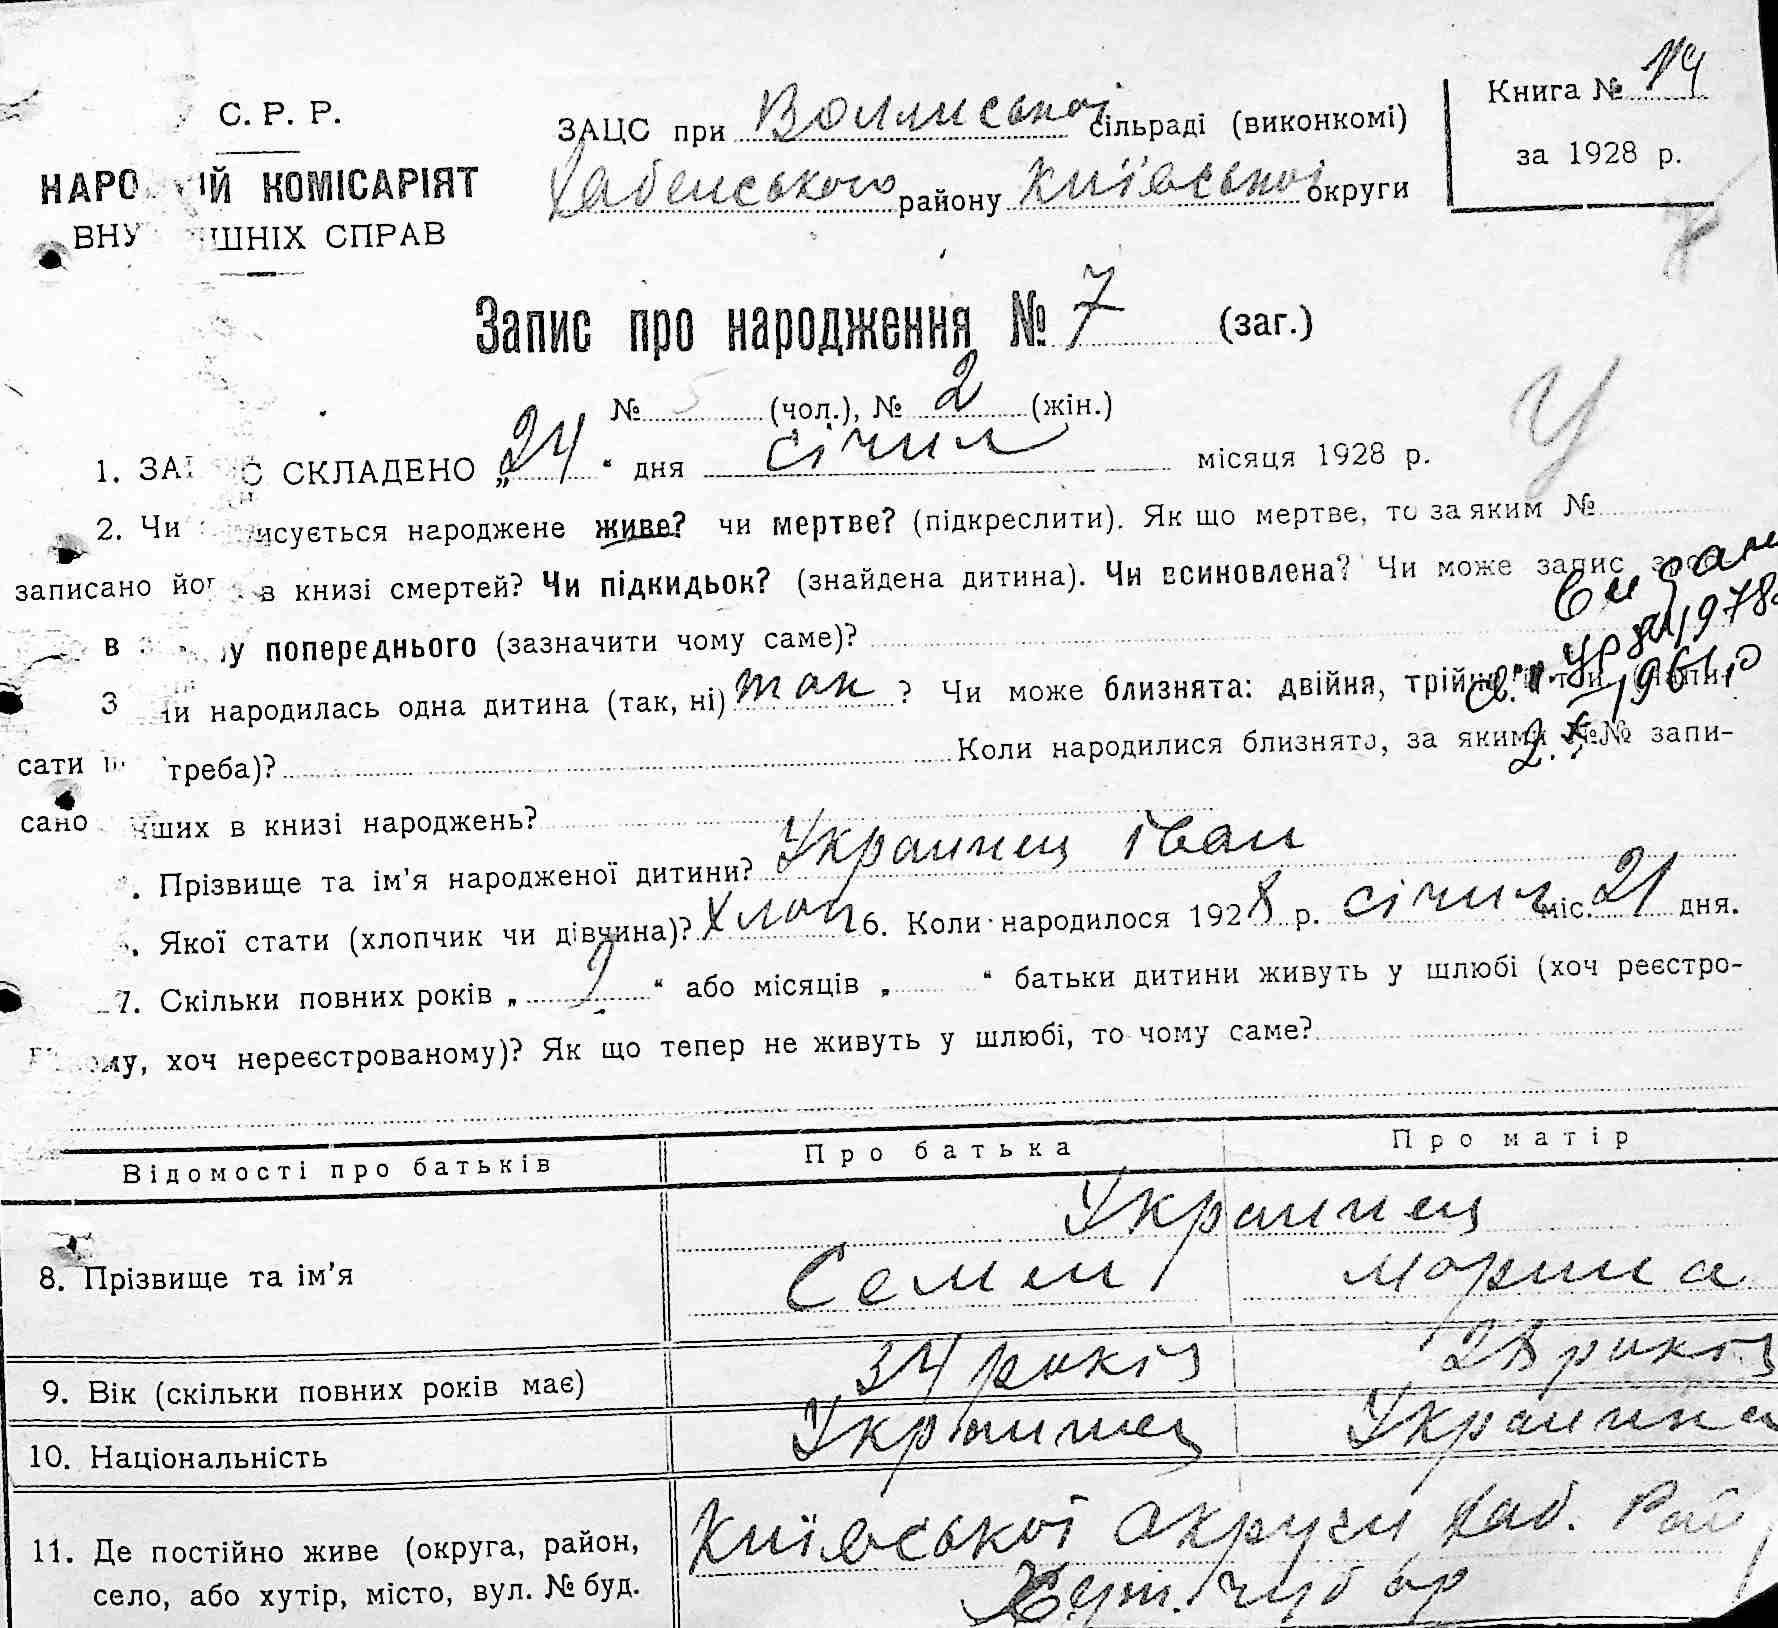 С. Р. Р.
НАРО ИЙ КОМІСАРІЯТ
ВНУ ШНІХ СПРАВ
ЗАЦС при Волянської сільраді (виконкомі)
Хабенського району Київської округи
Книга № 14
за 1928 р.
Запис про народження № 7 (заг.)
№ 5 (чол.), № 2 (жін.)
1. ЗА С СКЛАДЕНО „24“ дня січня місяця 1928 р.
2. Чи исується народжене живе? чи мертве? (підкреслити). Як що мертве, то за яким №
записано йог в книзі смертей? Чи підкидьок? (знайдена дитина). Чи всиновлена? Чи може запис
в у попереднього (зазначити чому саме)?
3 и народилась одна дитина (так, ні) так ? Чи може близнята: двійня, трійня
сати треба)? Коли народилися близнята, за якими №№ запи-
сано нших в книзі народжень?
. Прізвище та ім'я народженої дитини? Украинец іван
. Якої стати (хлопчик чи дівчина)? хлоп 6. Коли народилося 1928 р. січня міс. 21 дня.
7. Скільки повних років „ “ або місяців „ “ батьки дитини живуть у шлюбі (хоч реєстро-
ому, хоч нереєстрованому)? Як що тепер не живуть у шлюбі, то чому саме?
Відомості про батьків Про батька Про матір
Украинец
8. Прізвище та ім'я Семен Морина
9. Вік (скільки повних років має) 34 років 28 років
10. Національність Украинец Украинка
11. Де постійно живе (округа, район, Київської округи Хаб. Рай
село, або хутір, місто, вул. № буд. Хут.